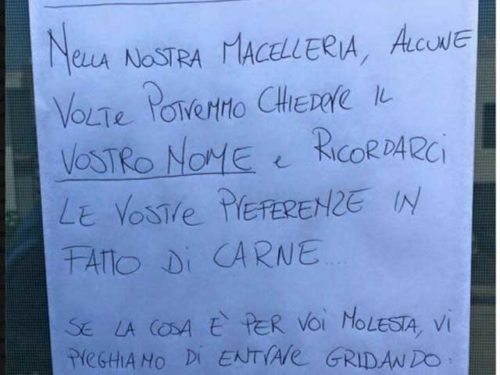 NELLA NOSTRA MACELLERIA, ALCUNE
VOLTE POTREMMO CHIEDERE IL
VOSTRO NOME e RICORDARCI
LE VOSTRE PREFERENZE IN
FATTO DI CARNE...
SE LA COSA È PER VOI MOLESTA, VI
PREGHIAMO DI ENTRARE GRIDANDO: